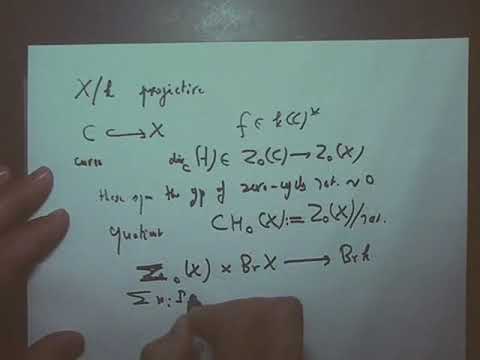 X/k projective
C ↪ X f ∈ k(C)*
curve div_C(f) ∈ Z₀(C) → Z₀(X)
these span the gp of zero-cycles rat. ~ 0
quotient CH₀(X) := Z₀(X)/rat.
Z₀(X) × Br X ⟶ Br k
Σ nᵢ P